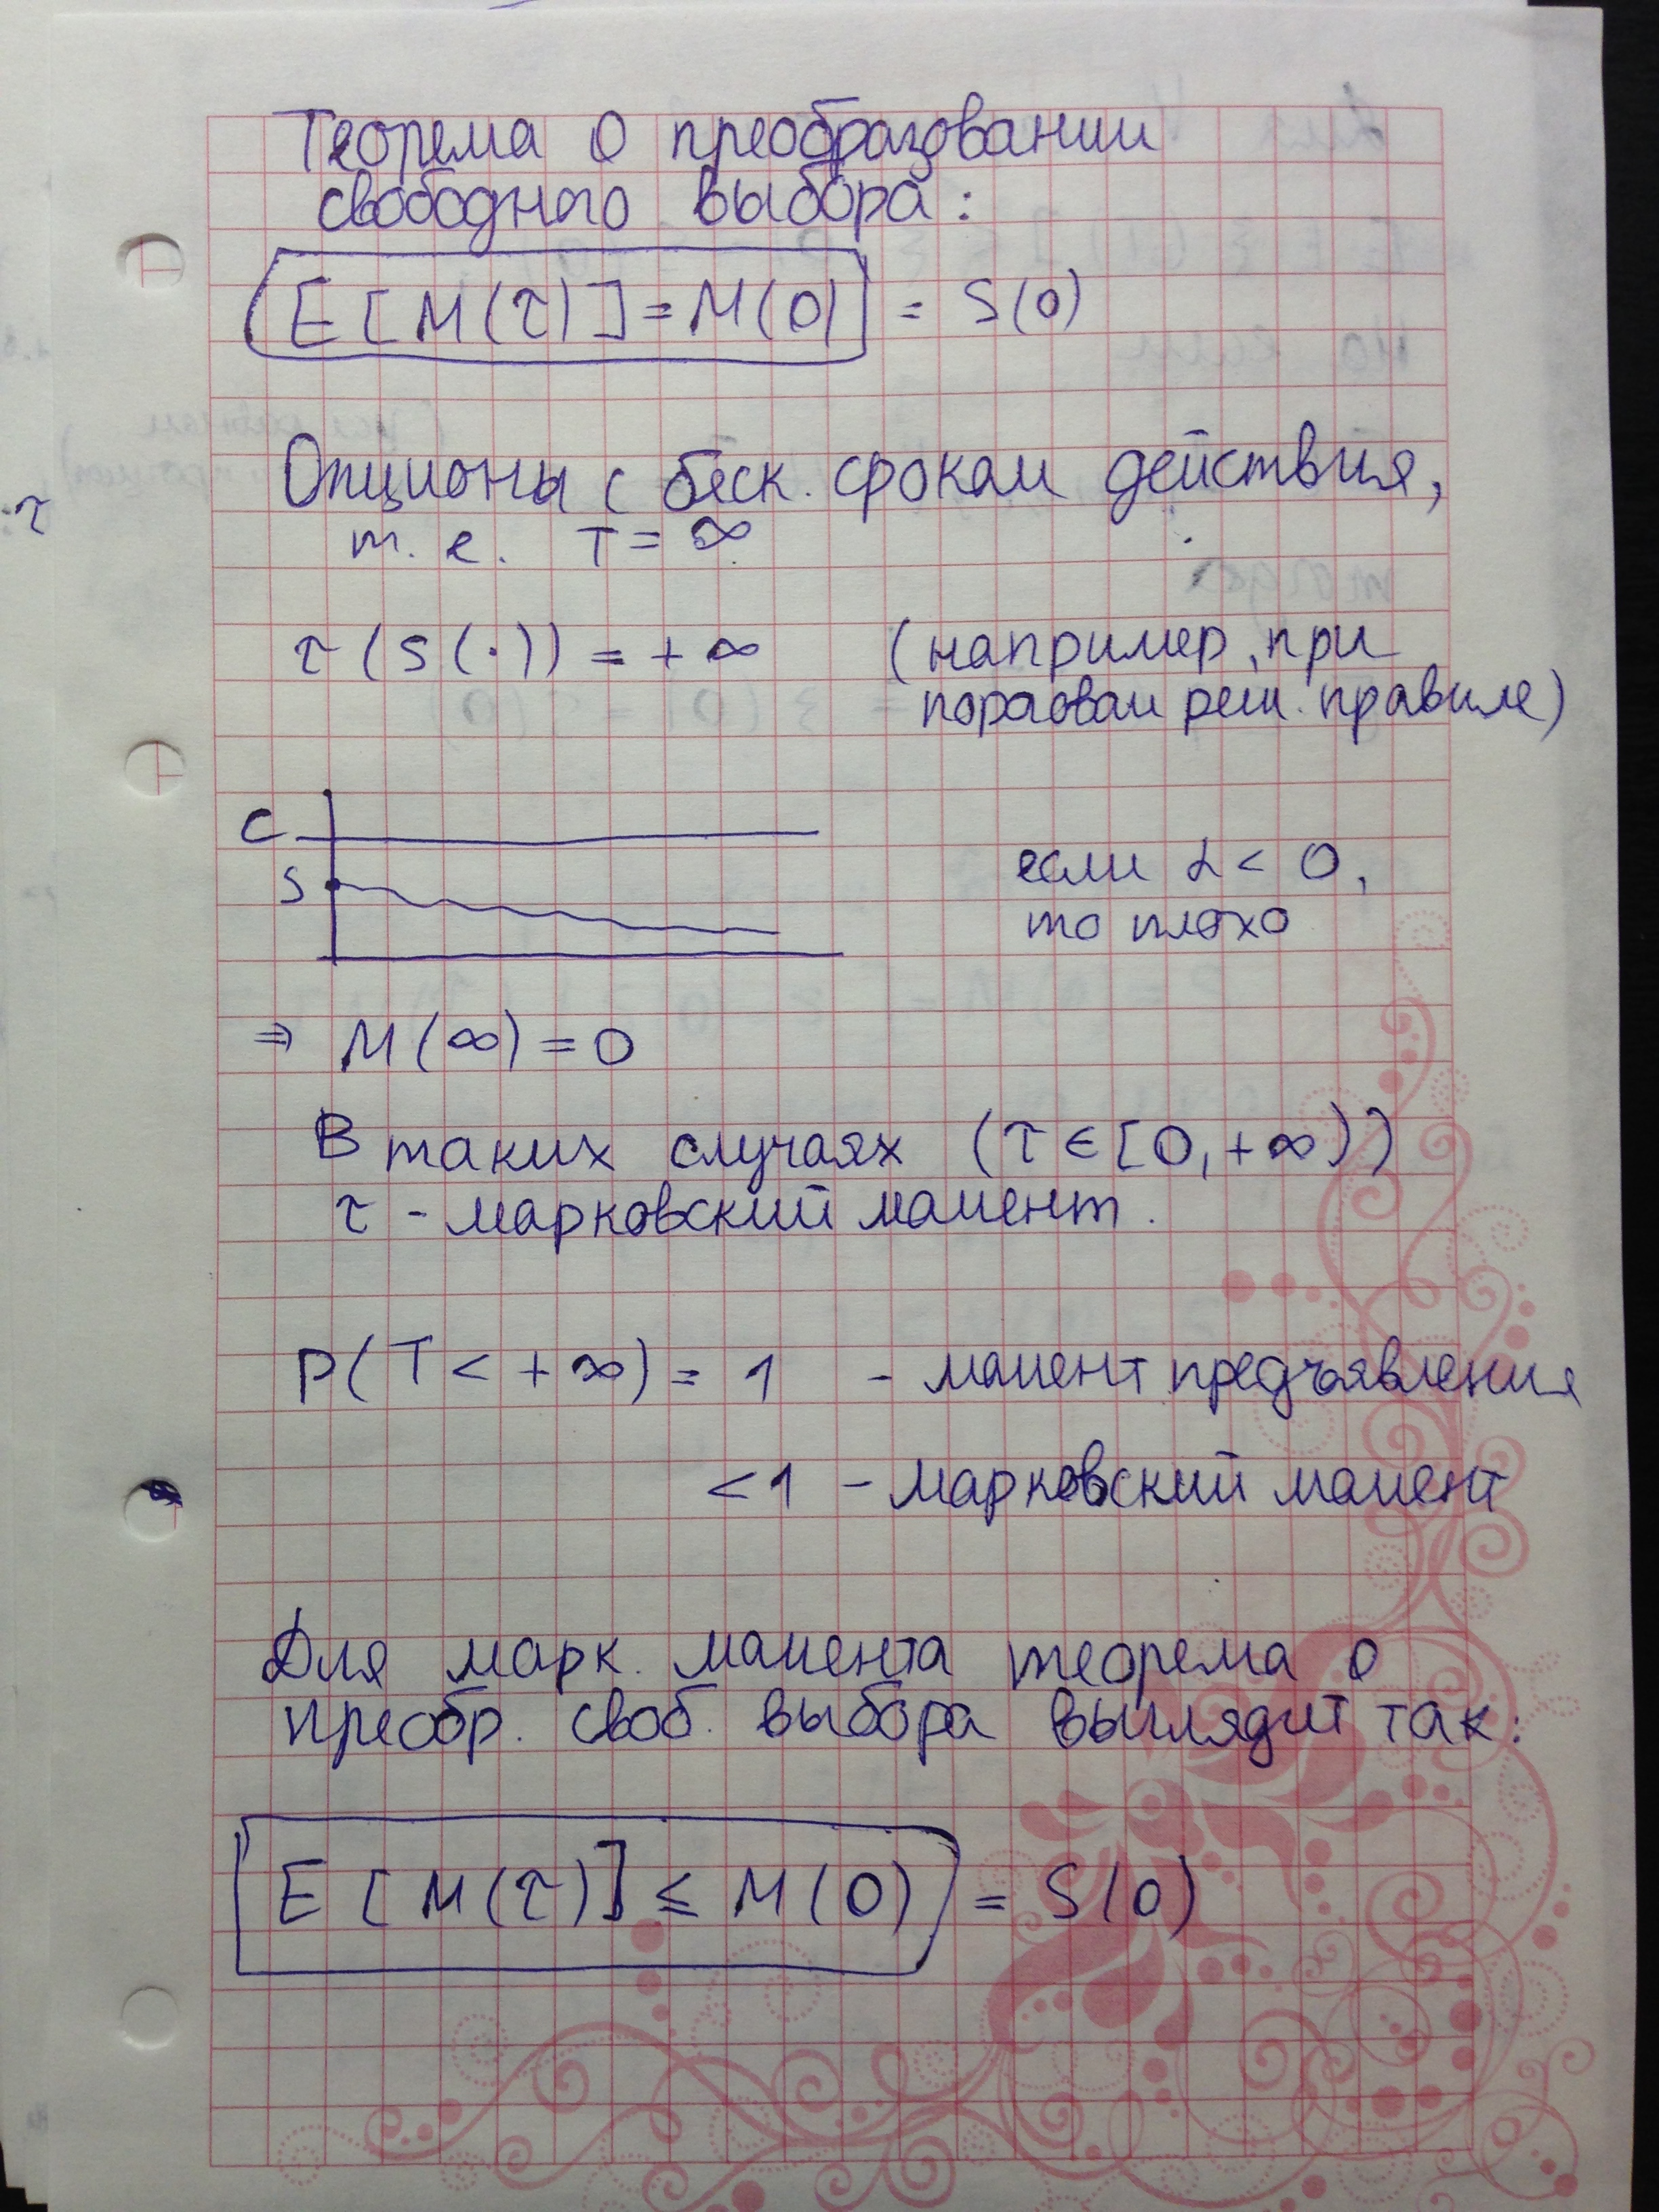 Теорема о преобразовании
свободного выбора:
E [ M(τ) ] = M(0) = S(0)
Опционы с беск. сроком действия,
т. е. T = ∞
τ (S(·)) = +∞ (например, при
пороговом реш. правиле)
τ
C
S
если α < 0,
то плохо
⇒ M(∞) = 0
В таких случаях (τ ∈ [0, +∞))
τ - марковский момент.
P(T < +∞) = 1 - момент предъявления
< 1 - марковский момент
Для марк. момента теорема о
преобр. своб. выбора выглядит так:
E [ M(τ) ] ≤ M(0) = S(0)